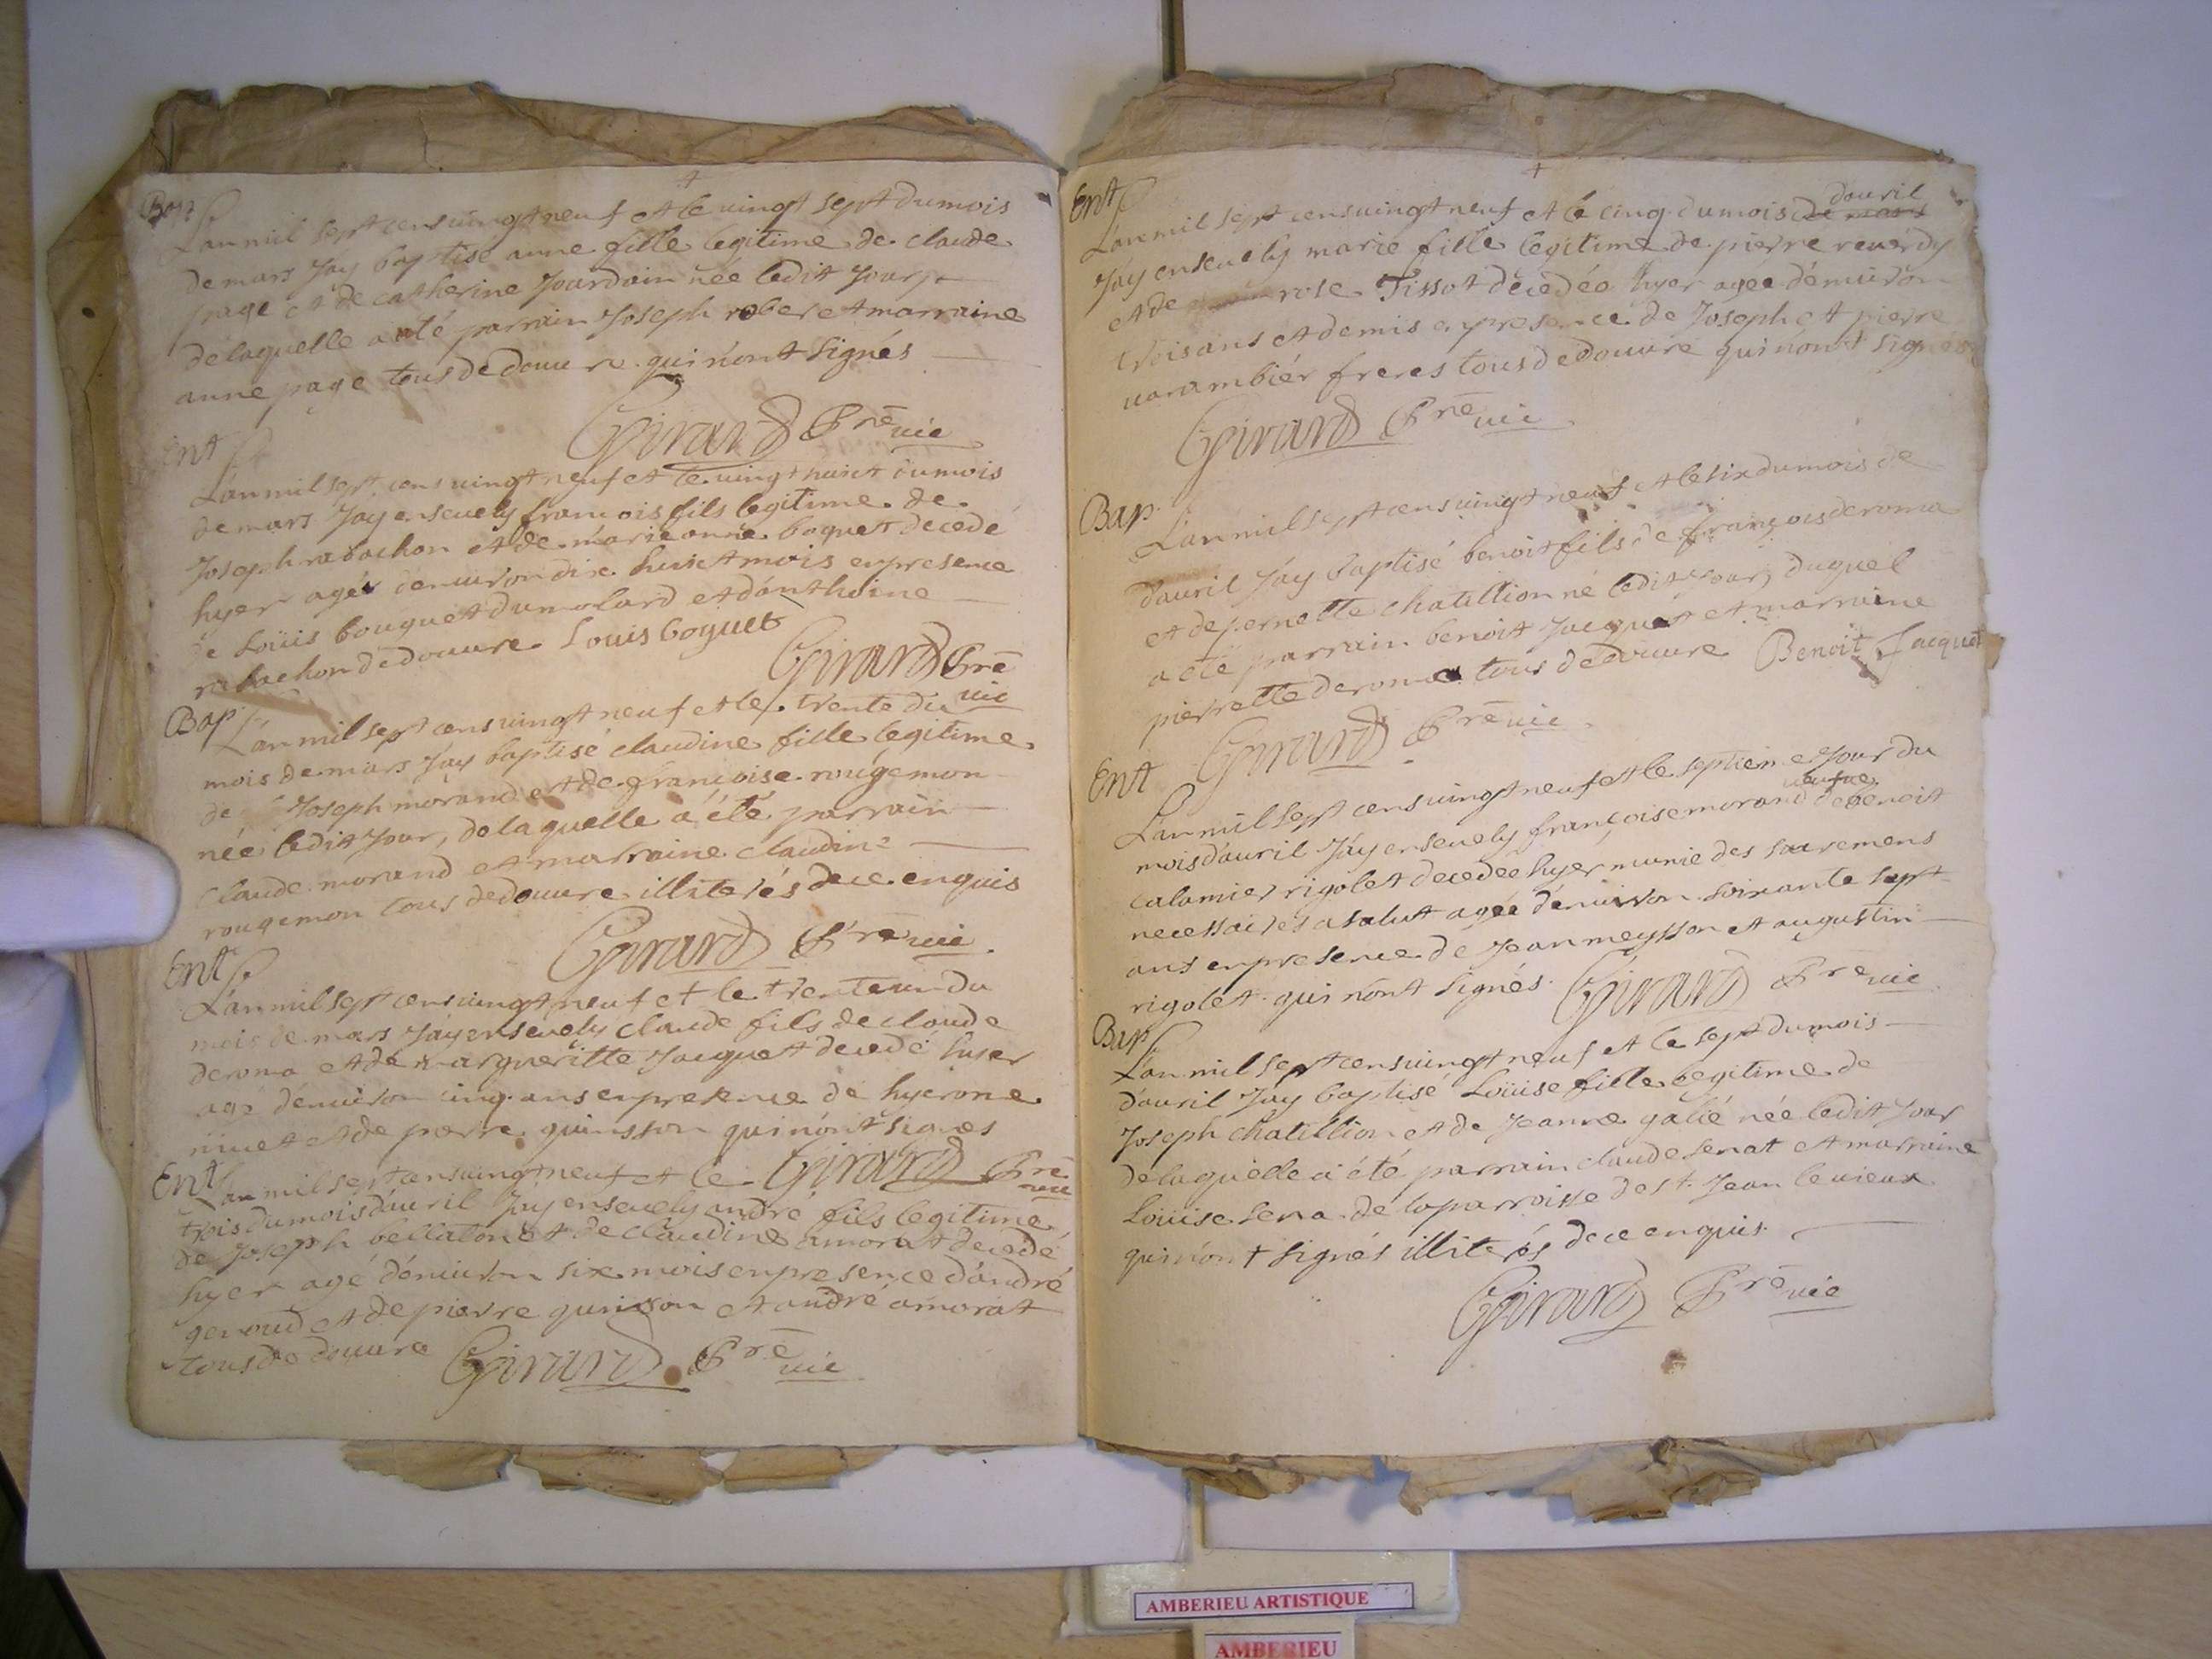 Bap
L'an mil sept cens vingt neuf et le vingt sept du mois
de mars j'ay baptisé anne fille legitime de claude
page et de catherine jourdain née ledit jour
de laquelle a eté parrain joseph rober et marraine
anne page tous de douvre qui n'ont signés
Girard Pre vic
Ent
L'an mil sept cens vingt neuf et le vingt huict du mois
de mars j'ay ensevely francois fils legitime de
joseph rabachon et de marieanne boquet decedé
hyer agés d'environ dix huict mois en presence
de Loüis bouquet du molard et d'anthoine
rabachon de douvre Louis boquet
Girard Pre
vic
Bap
L'an mil sept cens vingt neuf et le trente du
mois de mars j'ay baptisé claudine fille legitime
de joseph morand et de françoise rougemon
née ledit jour, de laquelle a été parrain
claude morand et marraine claudine
rougemon tous de douvre illiterés de ce enquis
Girard Pre vic
Ent
L'an mil sept cens vingt neuf et le trente un du
mois de mars j'ay ensevely claude fils de claude
deroma et de margueritte jacquet decedé hier
agé d'environ cinq ans en presence de hyerome
et de pierre quinsson qui n'ont signés
Girard Pre
vic
Ent
L'an mil sept cens vingt neuf et le
trois du mois d'avril j'ay ensevely andré fils legitime
de joseph bellaton et de claudine amorat decedé
hyer agé d'environ six mois en presence d'andré
genoud et de pierre quinson et andré amorat
tous de douvre Girard Pre vic
Ent
d'avril
L'an mil sept cens vingt neuf et le cinq du mois de mars
j'ay ensevely marie fille legitime de pierre reverdy
et de rose Tissot decedée hyer agée d'environ
trois ans et demis en presence de joseph et pierre
varambier freres tous de douvre qui n'ont signés
Girard Pre vic
Bap
L'an mil sept cens vingt neuf et le six du mois de
d'avril j'ay baptisé benoit fils de françois deroma
et de pernette chatillion né ledit jour, duquel
a été parrain benoit jacquet et marraine
pierrette deroma tous de douvre Benoit Jacquet
Girard Pre vic
Ent
L'an mil sept cens vingt neuf et le septieme jour du
veufve
mois d'avril j'ay ensevely françoise morand de benoit
calamier rigolet decedée hyer munie des sacremens
necessaires a salut agée d'environ soixante sept
ans en presence de jean meysson et augustin
rigolet qui n'ont signés Girard Pre vic
Bap
L'an mil sept cens vingt neuf et le sept du mois
d'avril j'ay baptisé Loüise fille legitime de
joseph chatillion et de jeanne galié née ledit jour
de laquelle a été parrain claude senat et marraine
Loüise sena de la parroisse de st. jean le vieux
qui n'ont signés illiterés de ce enquis
Girard Pre vic
AMBERIEU ARTISTIQUE
AMBERIEU